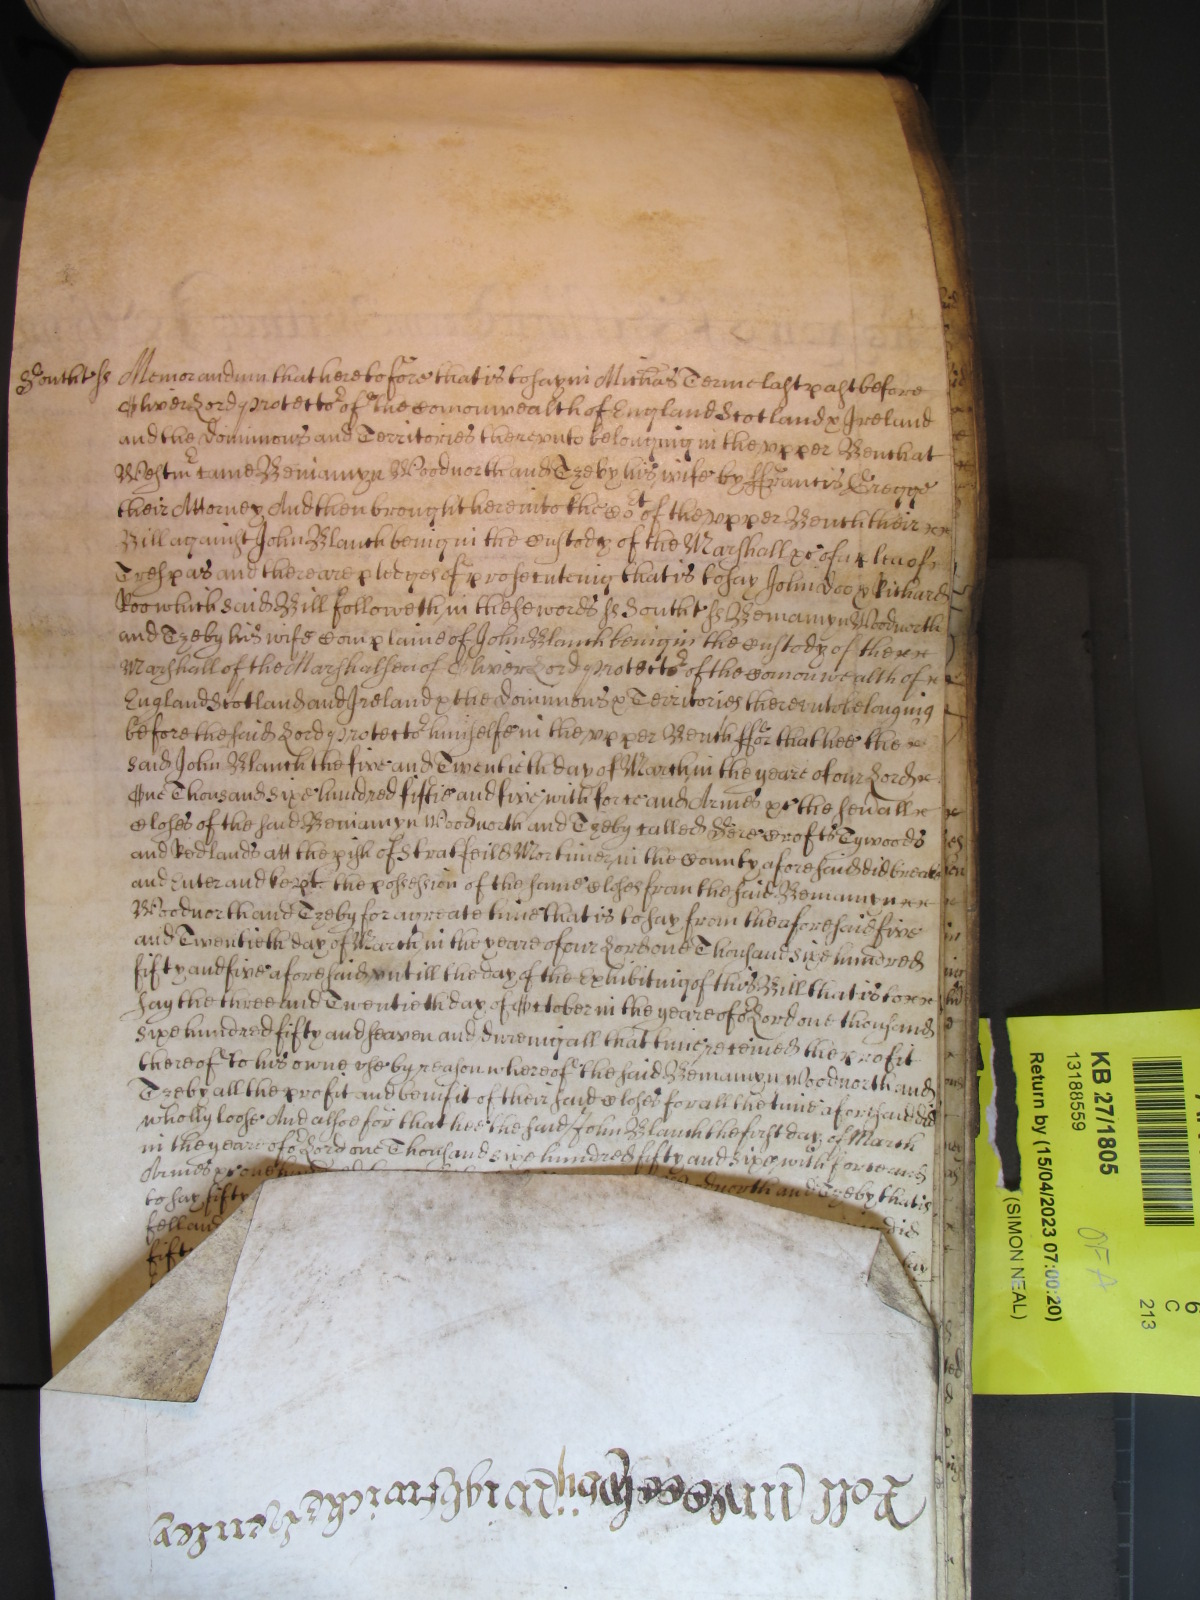 Southt ss Memorandum that heretofore that is to say in Michas Terme last past before
Oliver Lord Protector of the Comonwealth of England Scotland & Ireland
and the Dominions and Territories thereunto belonging in the vpper Bench at
Westmr came Beniamyn Woodnorth and Tzeby his wife by ffrancis Gregge
their Attorney And then brought here into the Cot of the vpper Bench their
Bill against John Blanch being in the custody of the Marshall &c of a plea of
Trespas and there are pledges of prosecuteing that is to say John Doo & Richard
Roo which said Bill followeth in these words ss Southt ss Beniamyn Woodnorth
and Tzeby his wife complaine of John Blanch being in the custody of the
Marshall of the Marshalsea of Oliver Lord Protector of the Comonwealth of
England Scotland and Ireland & the Dominions & Territories thereunto belonging
before the said Lord Protector himselfe in the vpper Bench ffor that hee the
said John Blanch the five and Twentieth day of March in the yeare of our Lord
One Thousand sixe hundred fiftie and five with force and Armes &c the severall
Closes of the said Beniamyn Woodnorth and Tzeby called Crofts Tywoods
and Redlands att the pish of Stratfeild Mortimer in the County aforesaid did breake
and Enter and kept the possession of the same closes from the said Beniamyn
Woodnorth and Tzeby for a greate time that is to say from the aforesaid five
and Twentieth day of March in the yeare of our Lord one Thousand sixe hundred
fifty and five aforesaid vntill the day of the Exhibiting of this Bill that is to
say the three and Twentieth day of October in the yeare of or Lord one thousand
sixe hundred fifty and seaven and dureing all that time receiued the profit
thereof to his owne vse by reason whereof the said Beniamyn Woodnorth and
Tzeby all the profit and benifit of their said closes for all the time aforesaid did
wholly loose And alsoe for that hee the said John Blanch the first day of March
in the yeare of or Lord one Thousand sixe hundred fifty and sixe with force and
Armes &c one
to say fifty and Tzeby that is
fell and did
fifty
Roll
KB 27/1805
13188559
Return by (15/04/2023 07:00:20)
(SIMON NEAL)
OFA
6
C
213